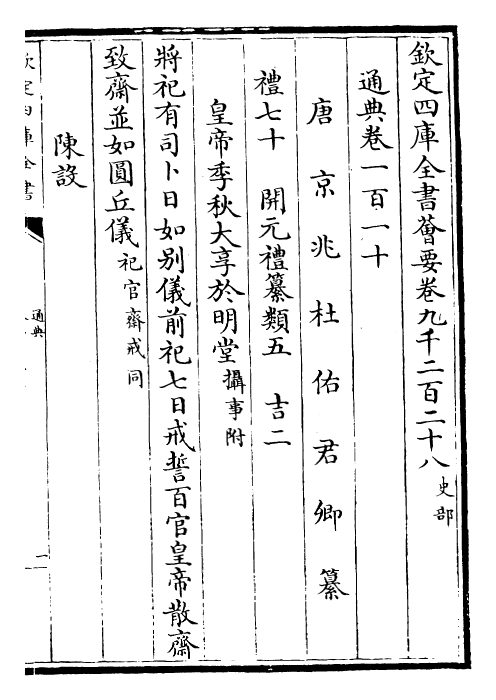 欽定四庫全書薈要卷九千二百二十八 史部
通典卷一百一十
唐京兆杜佑君卿纂
禮七十 開元禮纂類五 吉二
皇帝季秋大享於明堂 攝事附
將祀有司卜日如别儀前祀七日戒誓百官皇帝散齋
致齋並如圓丘儀 祀官齋戒同
陳設
欽定四庫全書
通典
一